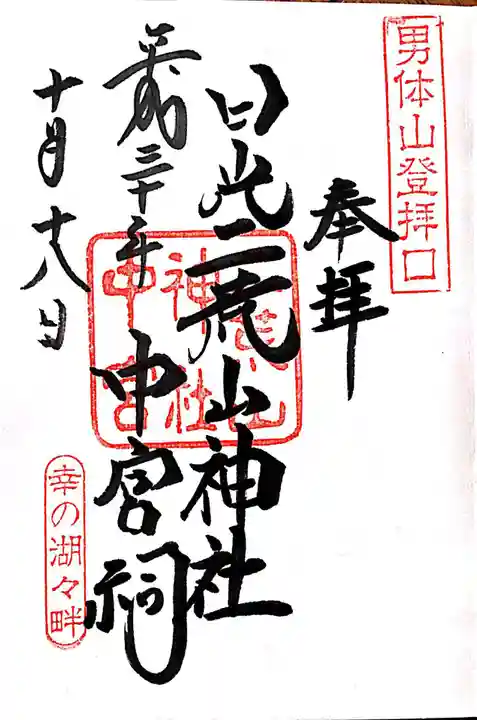 男体山登拝口
奉拝
日光二荒山神社
中宮祠
平成三十年
十月十八日
幸の湖々畔